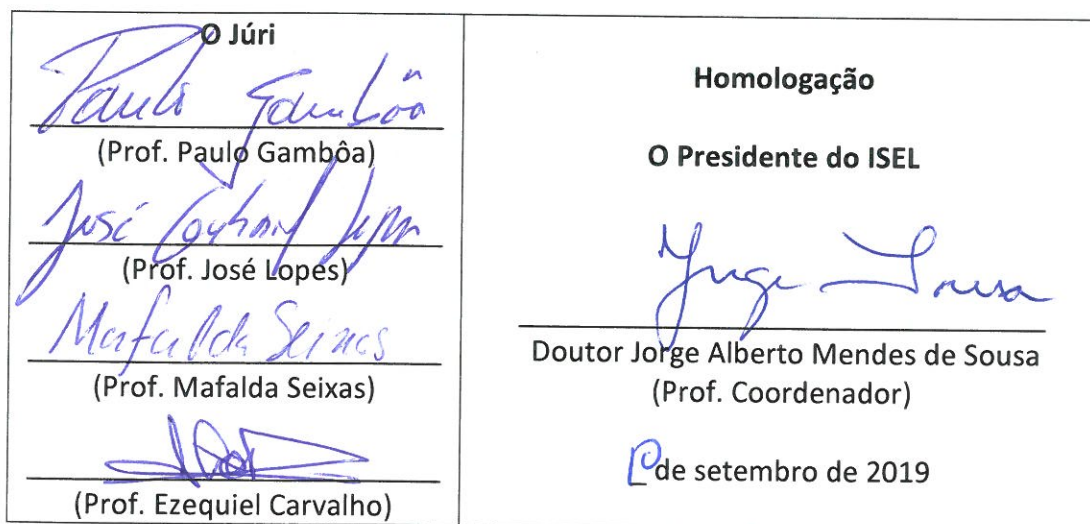 O Júri
Paulo Gambôa
(Prof. Paulo Gambôa)
José
(Prof. José Lopes)
Mafalda Seixas
(Prof. Mafalda Seixas)
(Prof. Ezequiel Carvalho)
Homologação
O Presidente do ISEL
Jorge Sousa
Doutor Jorge Alberto Mendes de Sousa
(Prof. Coordenador)
de setembro de 2019